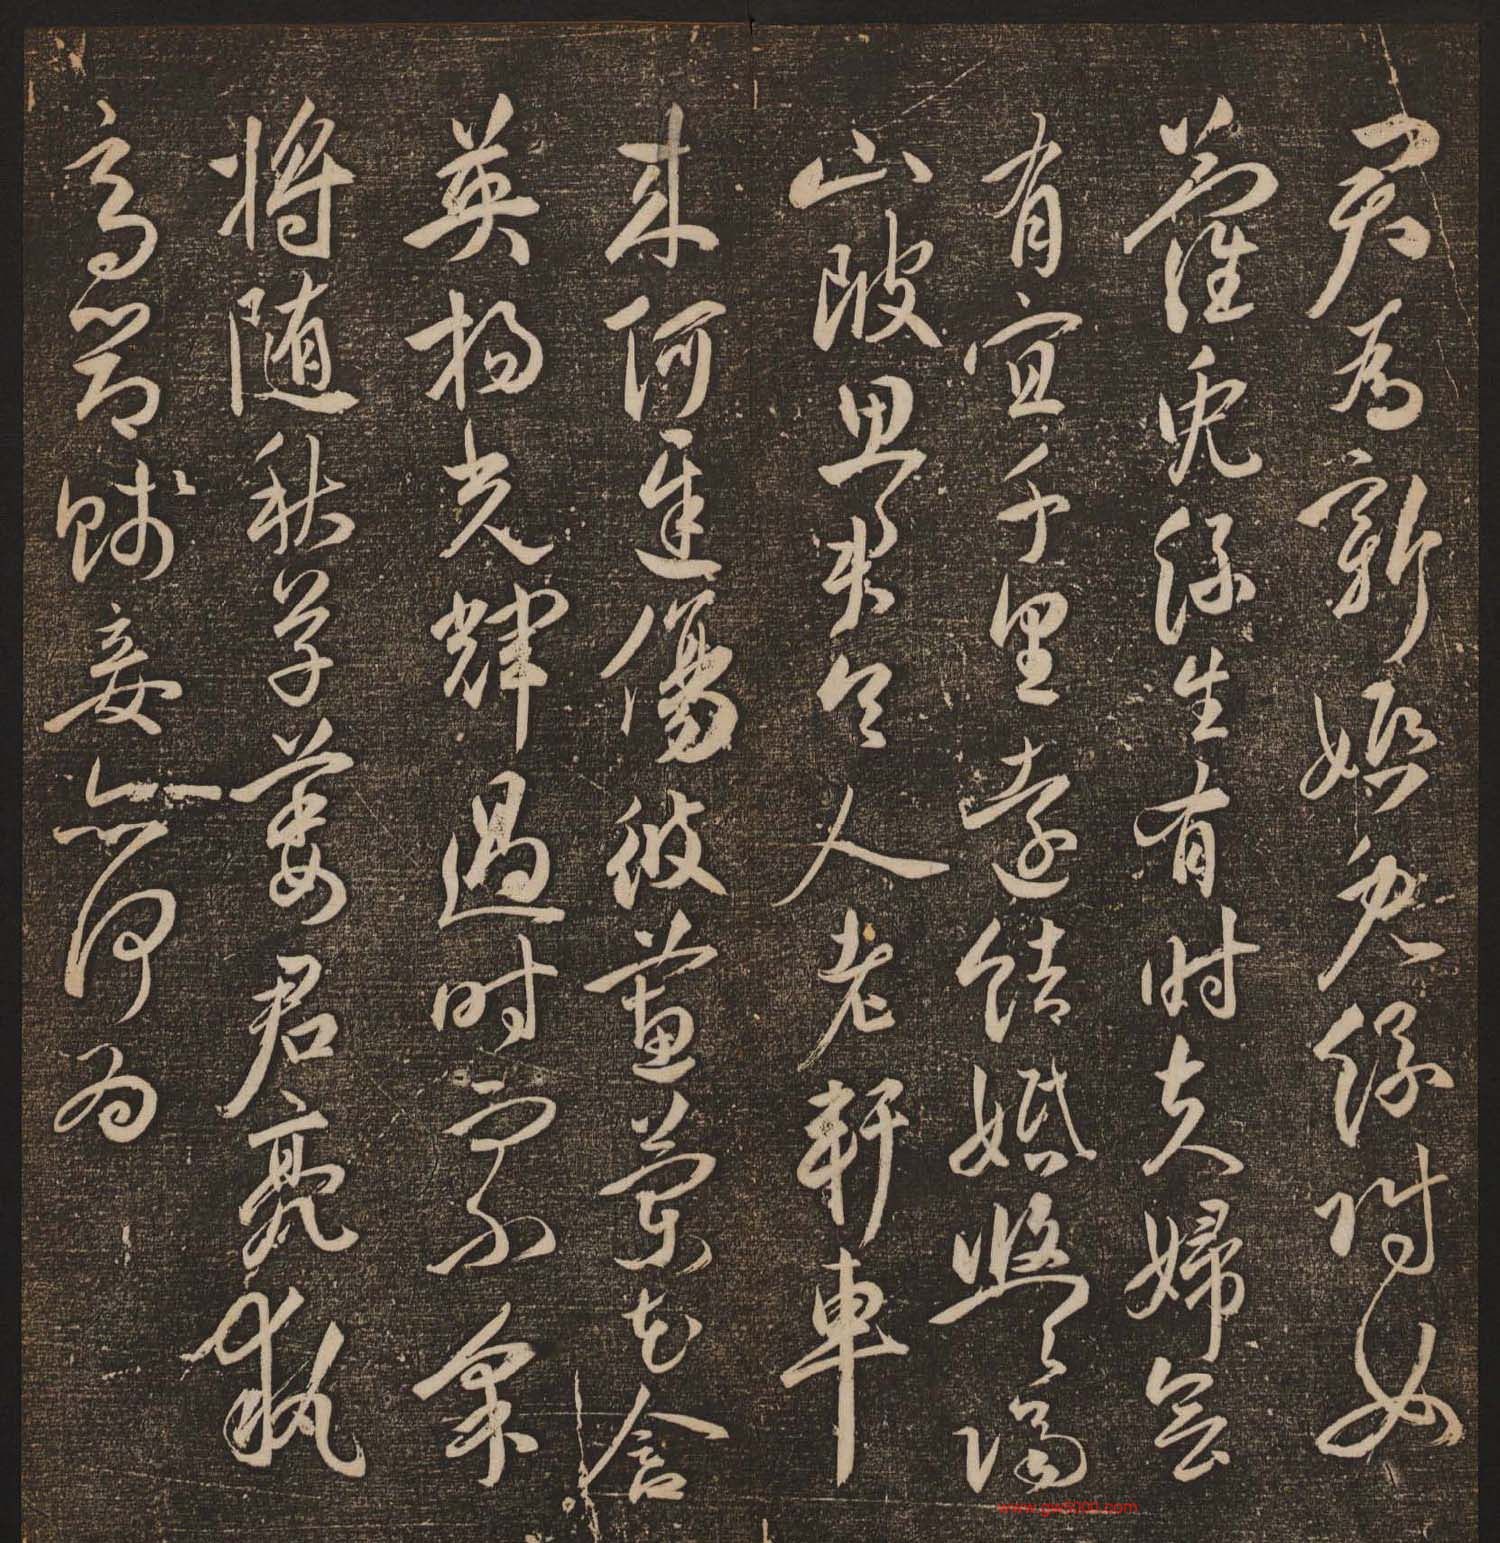 君為新婚兔絲附女
蘿兔絲生有時夫婦會
有宜千里遠結婚悠悠隔
山陂思君令人老軒車
來何遲傷彼蕙蘭花含
英揚光輝過時而不采
將隨秋草萎君亮執
高節賤妾亦何為